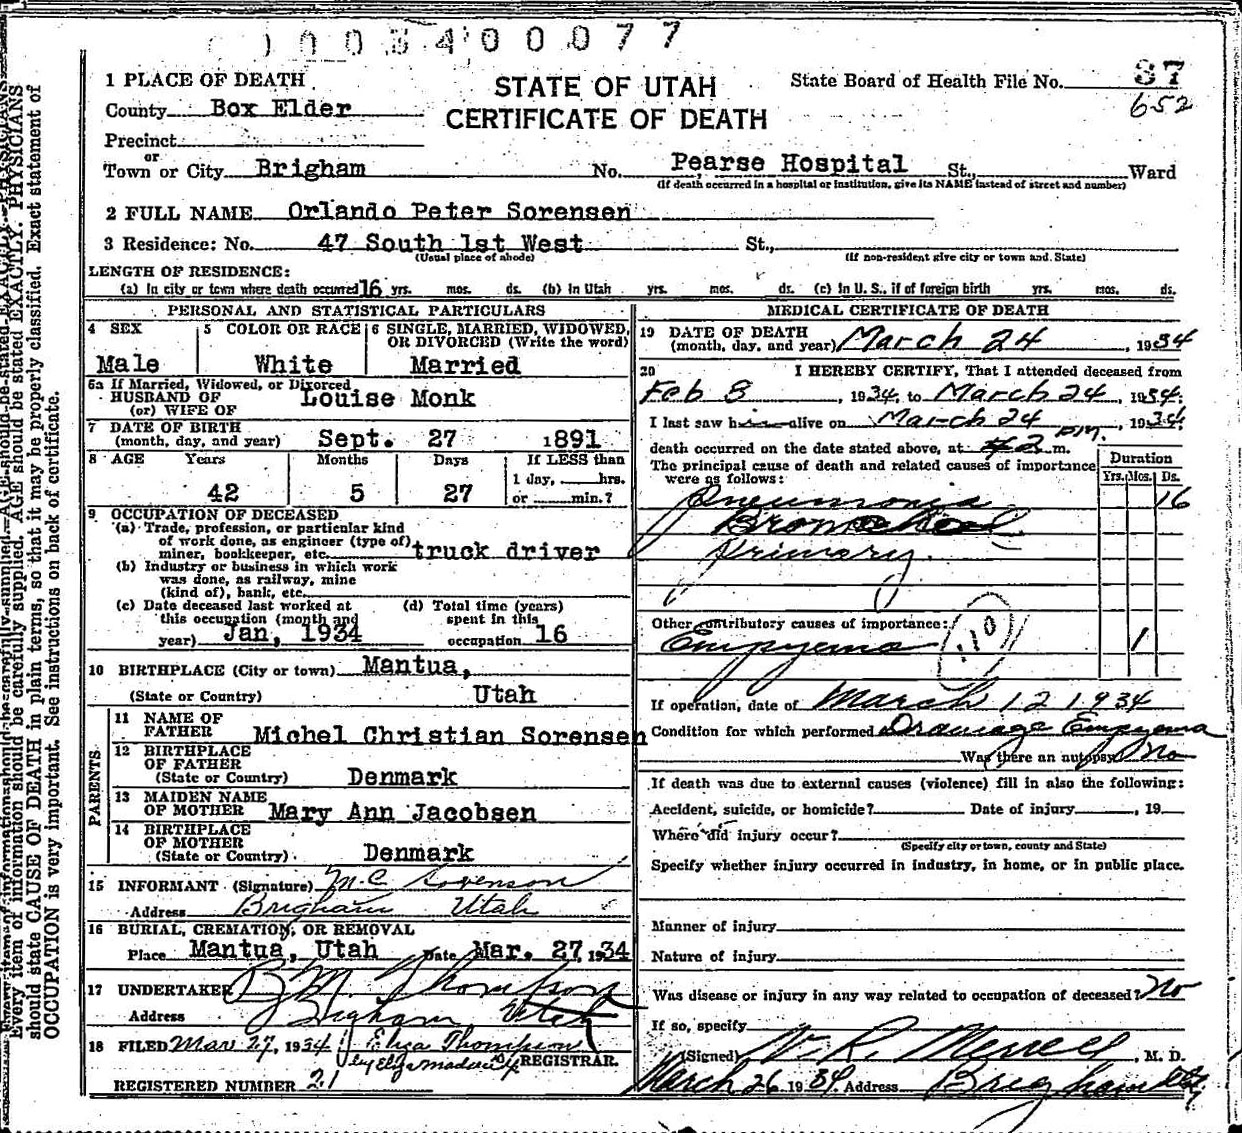 0 0 3 4 0 0 0 7 7
1 PLACE OF DEATH
County Box Elder
Precinct
or
Town or City Brigham
STATE OF UTAH
CERTIFICATE OF DEATH
State Board of Health File No. 37
652
No. Pearse Hospital St., Ward
(If death occurred in a hospital or institution, give its NAME instead of street and number)
2 FULL NAME Orlando Peter Sorensen
3 Residence: No. 47 South 1st West St.,
(Usual place of abode) (If non-resident give city or town and State)
LENGTH OF RESIDENCE:
(a) In city or town where death occurred 16 yrs. mos. ds. (b) In Utah yrs. mos. ds. (c) In U. S., if of foreign birth yrs. mos. ds.
PERSONAL AND STATISTICAL PARTICULARS
4 SEX
Male
5 COLOR OR RACE
White
6 SINGLE, MARRIED, WIDOWED, OR DIVORCED (Write the word)
Married
6a If Married, Widowed, or Divorced
HUSBAND OF Louise Monk
(or) WIFE OF
7 DATE OF BIRTH
(month, day, and year) Sept. 27 1891
8 AGE Years Months Days If LESS than
1 day, hrs.
42 5 27 or min.?
9 OCCUPATION OF DECEASED
(a) Trade, profession, or particular kind
of work done, as engineer (type of)
miner, bookkeeper, etc. truck driver
(b) Industry or business in which work
was done, as railway, mine
(kind of), bank, etc.
(c) Date deceased last worked at
this occupation (month and
year) Jan, 1934
(d) Total time (years)
spent in this
occupation 16
10 BIRTHPLACE (City or town) Mantua,
(State or Country) Utah
PARENTS
11 NAME OF
FATHER Michel Christian Sorensen
12 BIRTHPLACE
OF FATHER
(State or Country) Denmark
13 MAIDEN NAME
OF MOTHER Mary Ann Jacobsen
14 BIRTHPLACE
OF MOTHER
(State or Country) Denmark
15 INFORMANT (Signature) M.C. Sorenson
Address Brigham Utah
16 BURIAL, CREMATION, OR REMOVAL
Place Mantua, Utah Date Mar. 27 1934
17 UNDERTAKER B M Thompson
Address Brigham Utah
18 FILED Mar 27, 1934 Thompson
REGISTRAR.
REGISTERED NUMBER 21
MEDICAL CERTIFICATE OF DEATH
19 DATE OF DEATH
(month, day, and year) March 24, 1934
20 I HEREBY CERTIFY, That I attended deceased from
Feb 8, 1934, to March 24, 1934.
I last saw him alive on March 24, 1934
death occurred on the date stated above, at 2 pm. m.
The principal cause of death and related causes of importance
were as follows:
Duration
Yrs. Mos. Ds.
Pneumonia 16
Bronchial
Primary.
Other contributory causes of importance: 110
Empyema 1
If operation, date of March 12 1934
Condition for which performed Drainage Empyema
Was there an autopsy No
If death was due to external causes (violence) fill in also the following:
Accident, suicide, or homicide? Date of injury , 19
Where did injury occur?
(Specify city or town, county and State)
Specify whether injury occurred in industry, in home, or in public place.
Manner of injury
Nature of injury
Was disease or injury in any way related to occupation of deceased? No
If so, specify
(Signed) W. R. Merrell, M. D.
March 26 1934 Address Brigham City
Every item of information should be carefully supplied. AGE should be stated EXACTLY. PHYSICIANS
should state CAUSE OF DEATH in plain terms, so that it may be properly classified. Exact statement of
OCCUPATION is very important. See instructions on back of certificate.